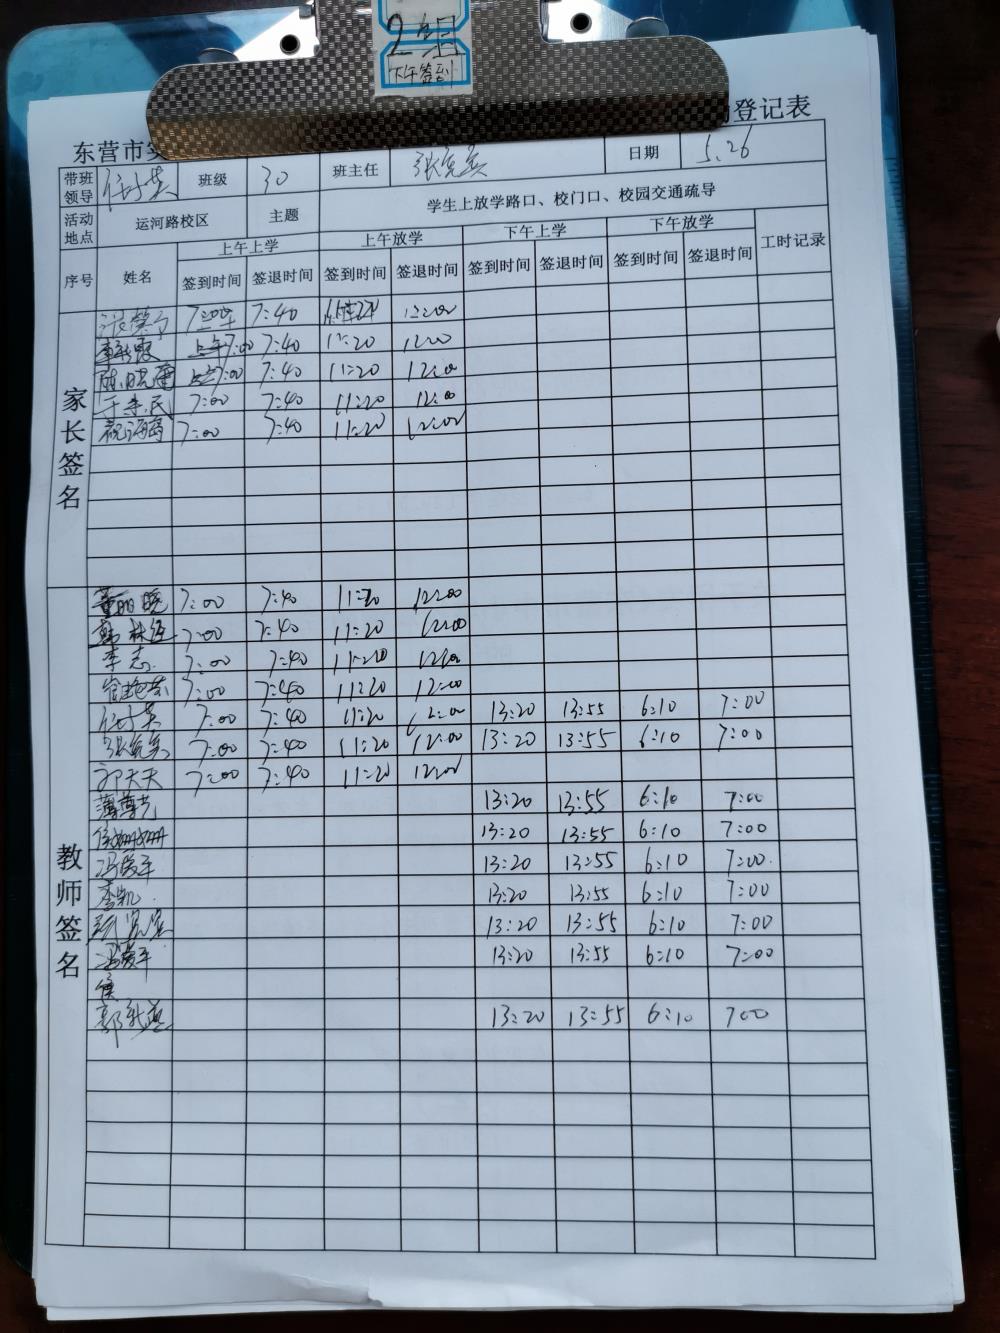 2组
下午签到
东营市实
登记表
带班领导 班级 30 班主任 日期 5.26
活动地点 运河路校区 主题 学生上放学路口、校门口、校园交通疏导
序号 姓名 上午上学 上午放学 下午上学 下午放学 工时记录
签到时间 签退时间 签到时间 签退时间 签到时间 签退时间 签到时间 签退时间
家长签名
7:40 12:00
上午7:00 7:40 11:20 12:00
7:00 7:40 11:20 12:00
7:00 7:40 11:20 12:00
祝海霞 7:00 7:40 11:20 12:00
教师签名
7:00 7:40 11:20 12:00
7:00 7:40 11:20 12:00
李志 7:00 7:40 11:20 12:00
7:00 7:40 11:20 12:00
7:00 7:40 11:20 12:00 13:20 13:55 6:10 7:00
7:00 7:40 11:20 12:00 13:20 13:55 6:10 7:00
7:00 7:40 11:20 12:00
13:20 13:55 6:10 7:00
侯姗姗 13:20 13:55 6:10 7:00
冯爱平 13:20 13:55 6:10 7:00
李凯 13:20 13:55 6:10 7:00
13:20 13:55 6:10 7:00
冯爱平 13:20 13:55 6:10 7:00
侯
13:20 13:55 6:10 7:00